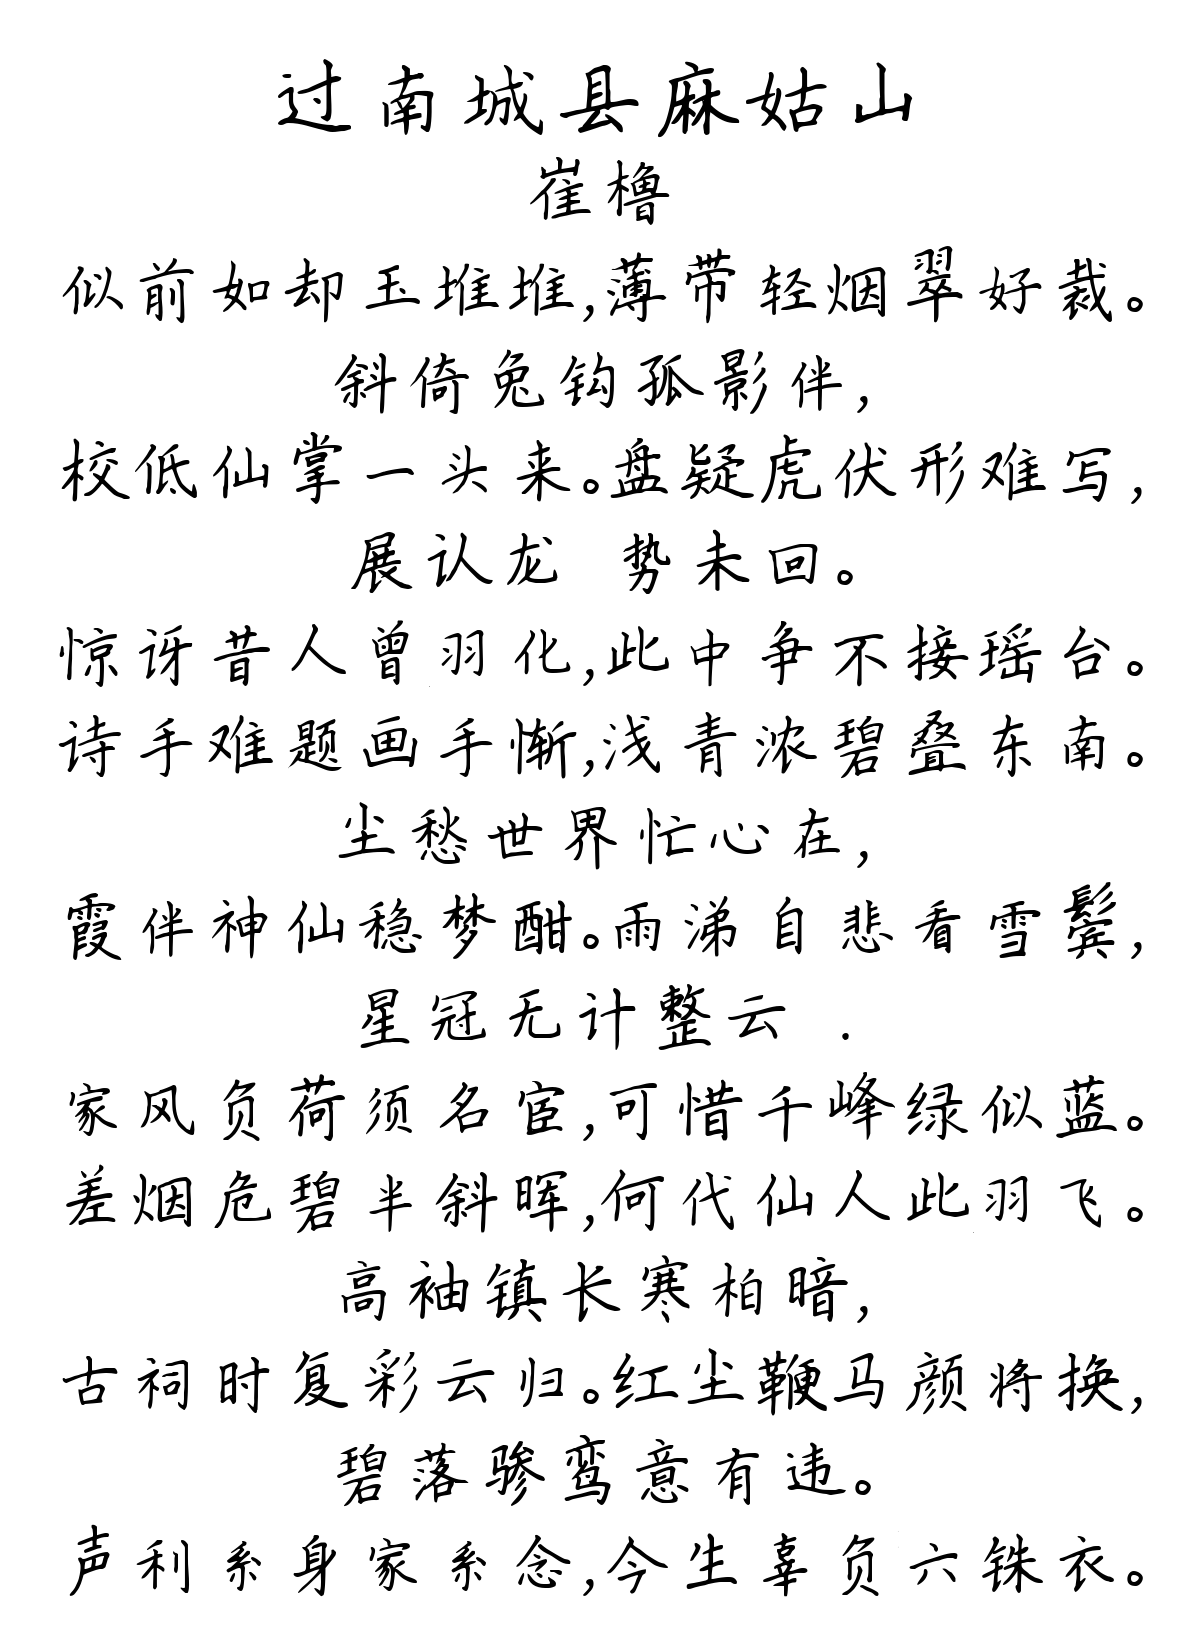 过南城县麻姑山
崔橹
似前如却玉堆堆,薄带轻烟翠好裁。
斜倚兔钩孤影伴,
校低仙掌一头来。盘疑虎伏形难写,
展认龙 势未回。
惊讶昔人曾羽化,此中争不接瑶台。
诗手难题画手惭,浅青浓碧叠东南。
尘愁世界忙心在,
霞伴神仙稳梦酣。雨涕自悲看雪鬓,
星冠无计整云 .
家风负荷须名宦,可惜千峰绿似蓝。
差烟危碧半斜晖,何代仙人此羽飞。
高袖镇长寒柏暗,
古祠时复彩云归。红尘鞭马颜将换,
碧落骖鸾意有违。
声利系身家系念,今生辜负六铢衣。